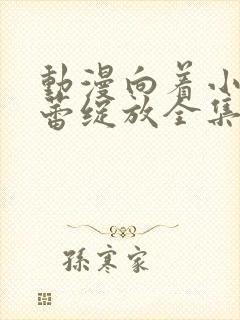 動漫向着小
蕾绽放全集
孫寒家